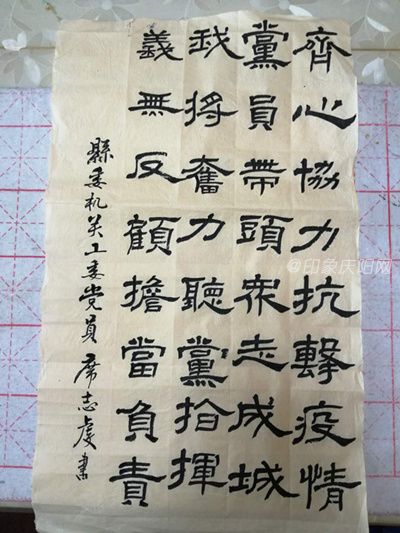 齊心協力抗擊疫情
黨員帶頭衆志成城
我將奮力聽黨指揮
義無反顧擔當負責
縣委机关工委党员 席志虔書
@印象庆阳网